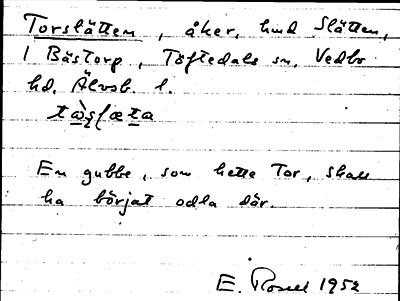 Torslätten, åker, hmd Slätten,
1 Bästorp, Töftedals sn, Vedbo
hd, Älvsb. l.
En gubbe, som hette Tor, skall
ha börjat odla där.
E. Rosell 1952